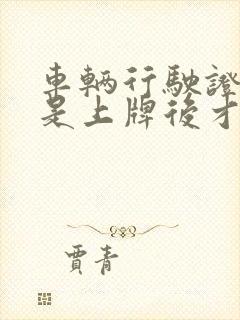 車輛行駛證
是上牌後才
賈青